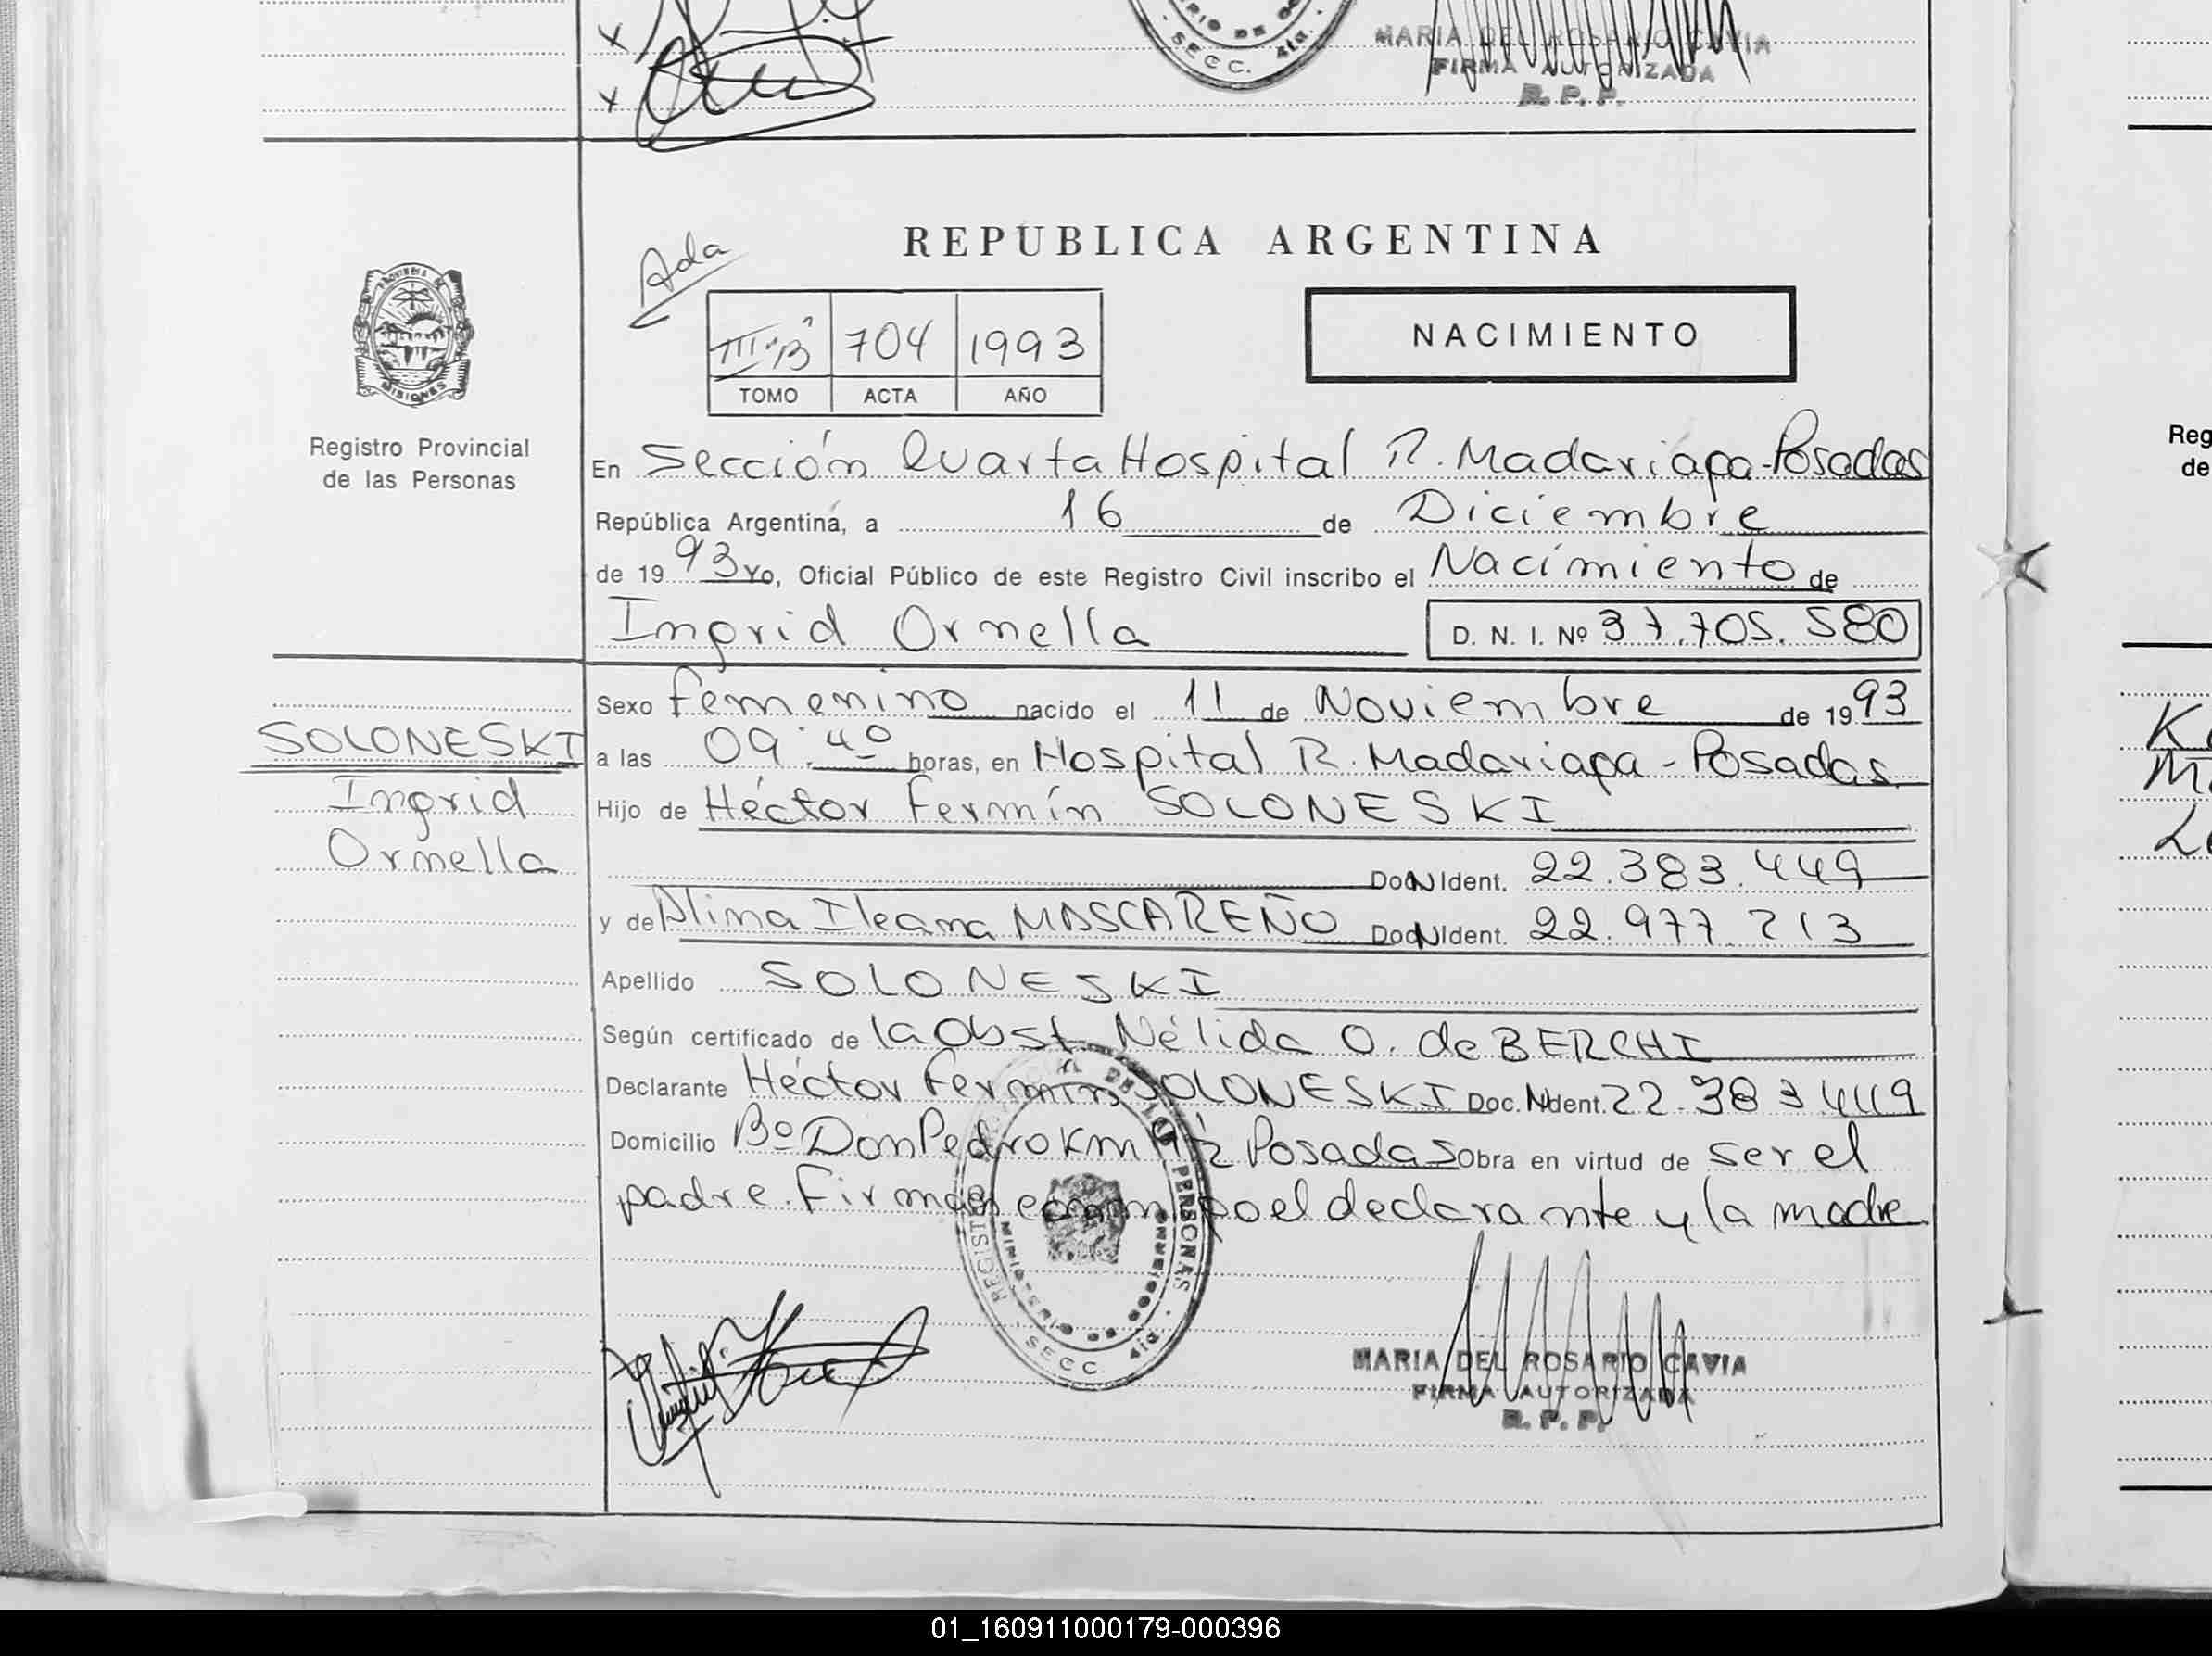 MINISTERIO DE GO
SECC. 4ta.
MARIA DEL ROSARIO CAVIA
FIRMA AUTORIZADA
R. P. P.
REPUBLICA ARGENTINA
Ada
704 1993
TOMO ACTA AÑO
NACIMIENTO
PROVINCIA DE
MISIONES
Registro Provincial
de las Personas
En Sección Cuarta Hospital R. Madariaga-Posadas
República Argentina, a 16 de Diciembre
de 19 93 Yo, Oficial Público de este Registro Civil inscribo el Nacimiento de
Ingrid Ornella D. N. I. Nº 37.705.580
Sexo femenino nacido el 11 de Noviembre de 19 93
SOLONESKI
Ingrid
Ornella
a las 09:40 horas, en Hospital R. Madariaga - Posadas
Hijo de Héctor Fermín SOLONESKI
DocNIdent. 22.383.449
y de Alima Ileana MASCAREÑO DocNIdent. 22.977.213
Apellido SOLONESKI
Según certificado de la Obst. Nélida O. de BERCHI
Declarante Héctor Fermín SOLONESKI Doc. NIdent. 22.383.449
Domicilio Bº Don Pedro Km Posadas Obra en virtud de ser el
padre. Firman conmigo el declarante y la madre
REGISTRO PROVINCIAL DE LAS PERSONAS
MINISTERIO DE GOBIERNO
SECC. 4ta.
MARIA DEL ROSARIO CAVIA
FIRMA AUTORIZADA
R. P. P.
Reg
de
01_160911000179-000396